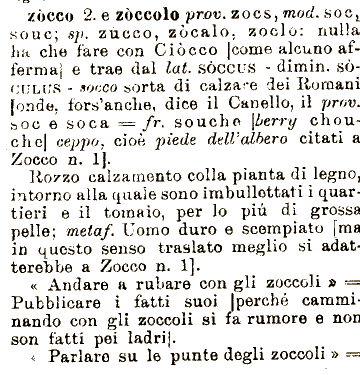 zòcco 2. e zòccolo prov. zocs, mod. soc,
souc; sp. zùcco, zòcalo, zoclo: nulla
ha che fare con Ciòcco [come alcuno af-
ferma] e trae dal lat. sòccus - dimin. sò-
culus - socco sorta di calzare dei Romani
[onde, fors'anche, dice il Canello, il prov.
soc e soca = fr. souche [berry chou-
che] ceppo, cioè piede dell'albero citati a
Zocco n. 1].
Rozzo calzamento colla pianta di legno,
intorno alla quale sono imbullottati i quar-
tieri e il tomaio, per lo più di grossa
pelle; metaf. Uomo duro e scempiato [ma
in questo senso traslato meglio si adat-
terebbe a Zocco n. 1].
« Andare a rubare con gli zoccoli » =
Pubblicare i fatti suoi [perché cammi-
nando con gli zoccoli si fa rumore e non
son fatti pei ladri].
« Parlare su le punte degli zoccoli » =